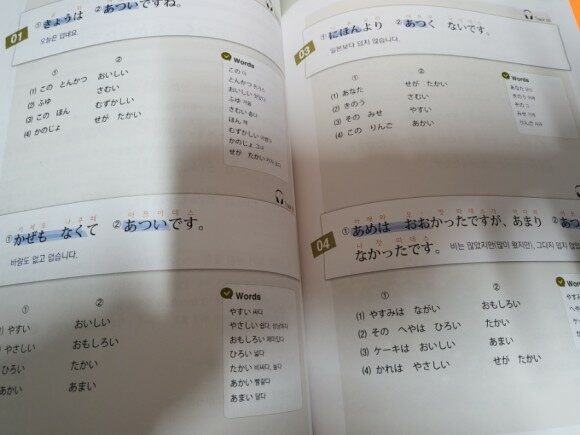 01
① きょうは ② あついですね。
오늘은 덥네요.
① ②
(1) この とんかつ おいしい
(2) ふゆ さむい
(3) この ほん むずかしい
(4) かのじょ せが たかい
Words
この 이
とんかつ 돈가스
おいしい 맛있다
ふゆ 겨울
さむい 춥다
ほん 책
むずかしい 어렵다
かのじょ 그녀
せが たかい 키가 크다
① かぜも なくて ② あついです。
바람도 없고 덥습니다.
① ②
やすい おいしい
やさしい おもしろい
ひろい たかい
あかい あまい
Words
やすい 싸다
やさしい 쉽다, 상냥하다
おもしろい 재미있다
ひろい 넓다
たかい 비싸다, 높다
あかい 빨갛다
あまい 달다
03
① にほんより ② あつく ないです。
일본보다 덥지 않습니다.
① ②
(1) あなた せが たかい
(2) きのう さむい
(3) その みせ やすい
(4) この りんご あかい
Words
あなた 당신
きのう 어제
その 그
みせ 가게
りんご 사과
04
① あめは おおかったですが、あまり ② あつ
なかったです。
비는 많았지만(많이 왔지만), 그다지 덥지 않았
① ②
(1) やすみは ながい おもしろい
(2) その へやは ひろい たかい
(3) ケーキは おいしい あまい
(4) かれは やさしい せが たかい